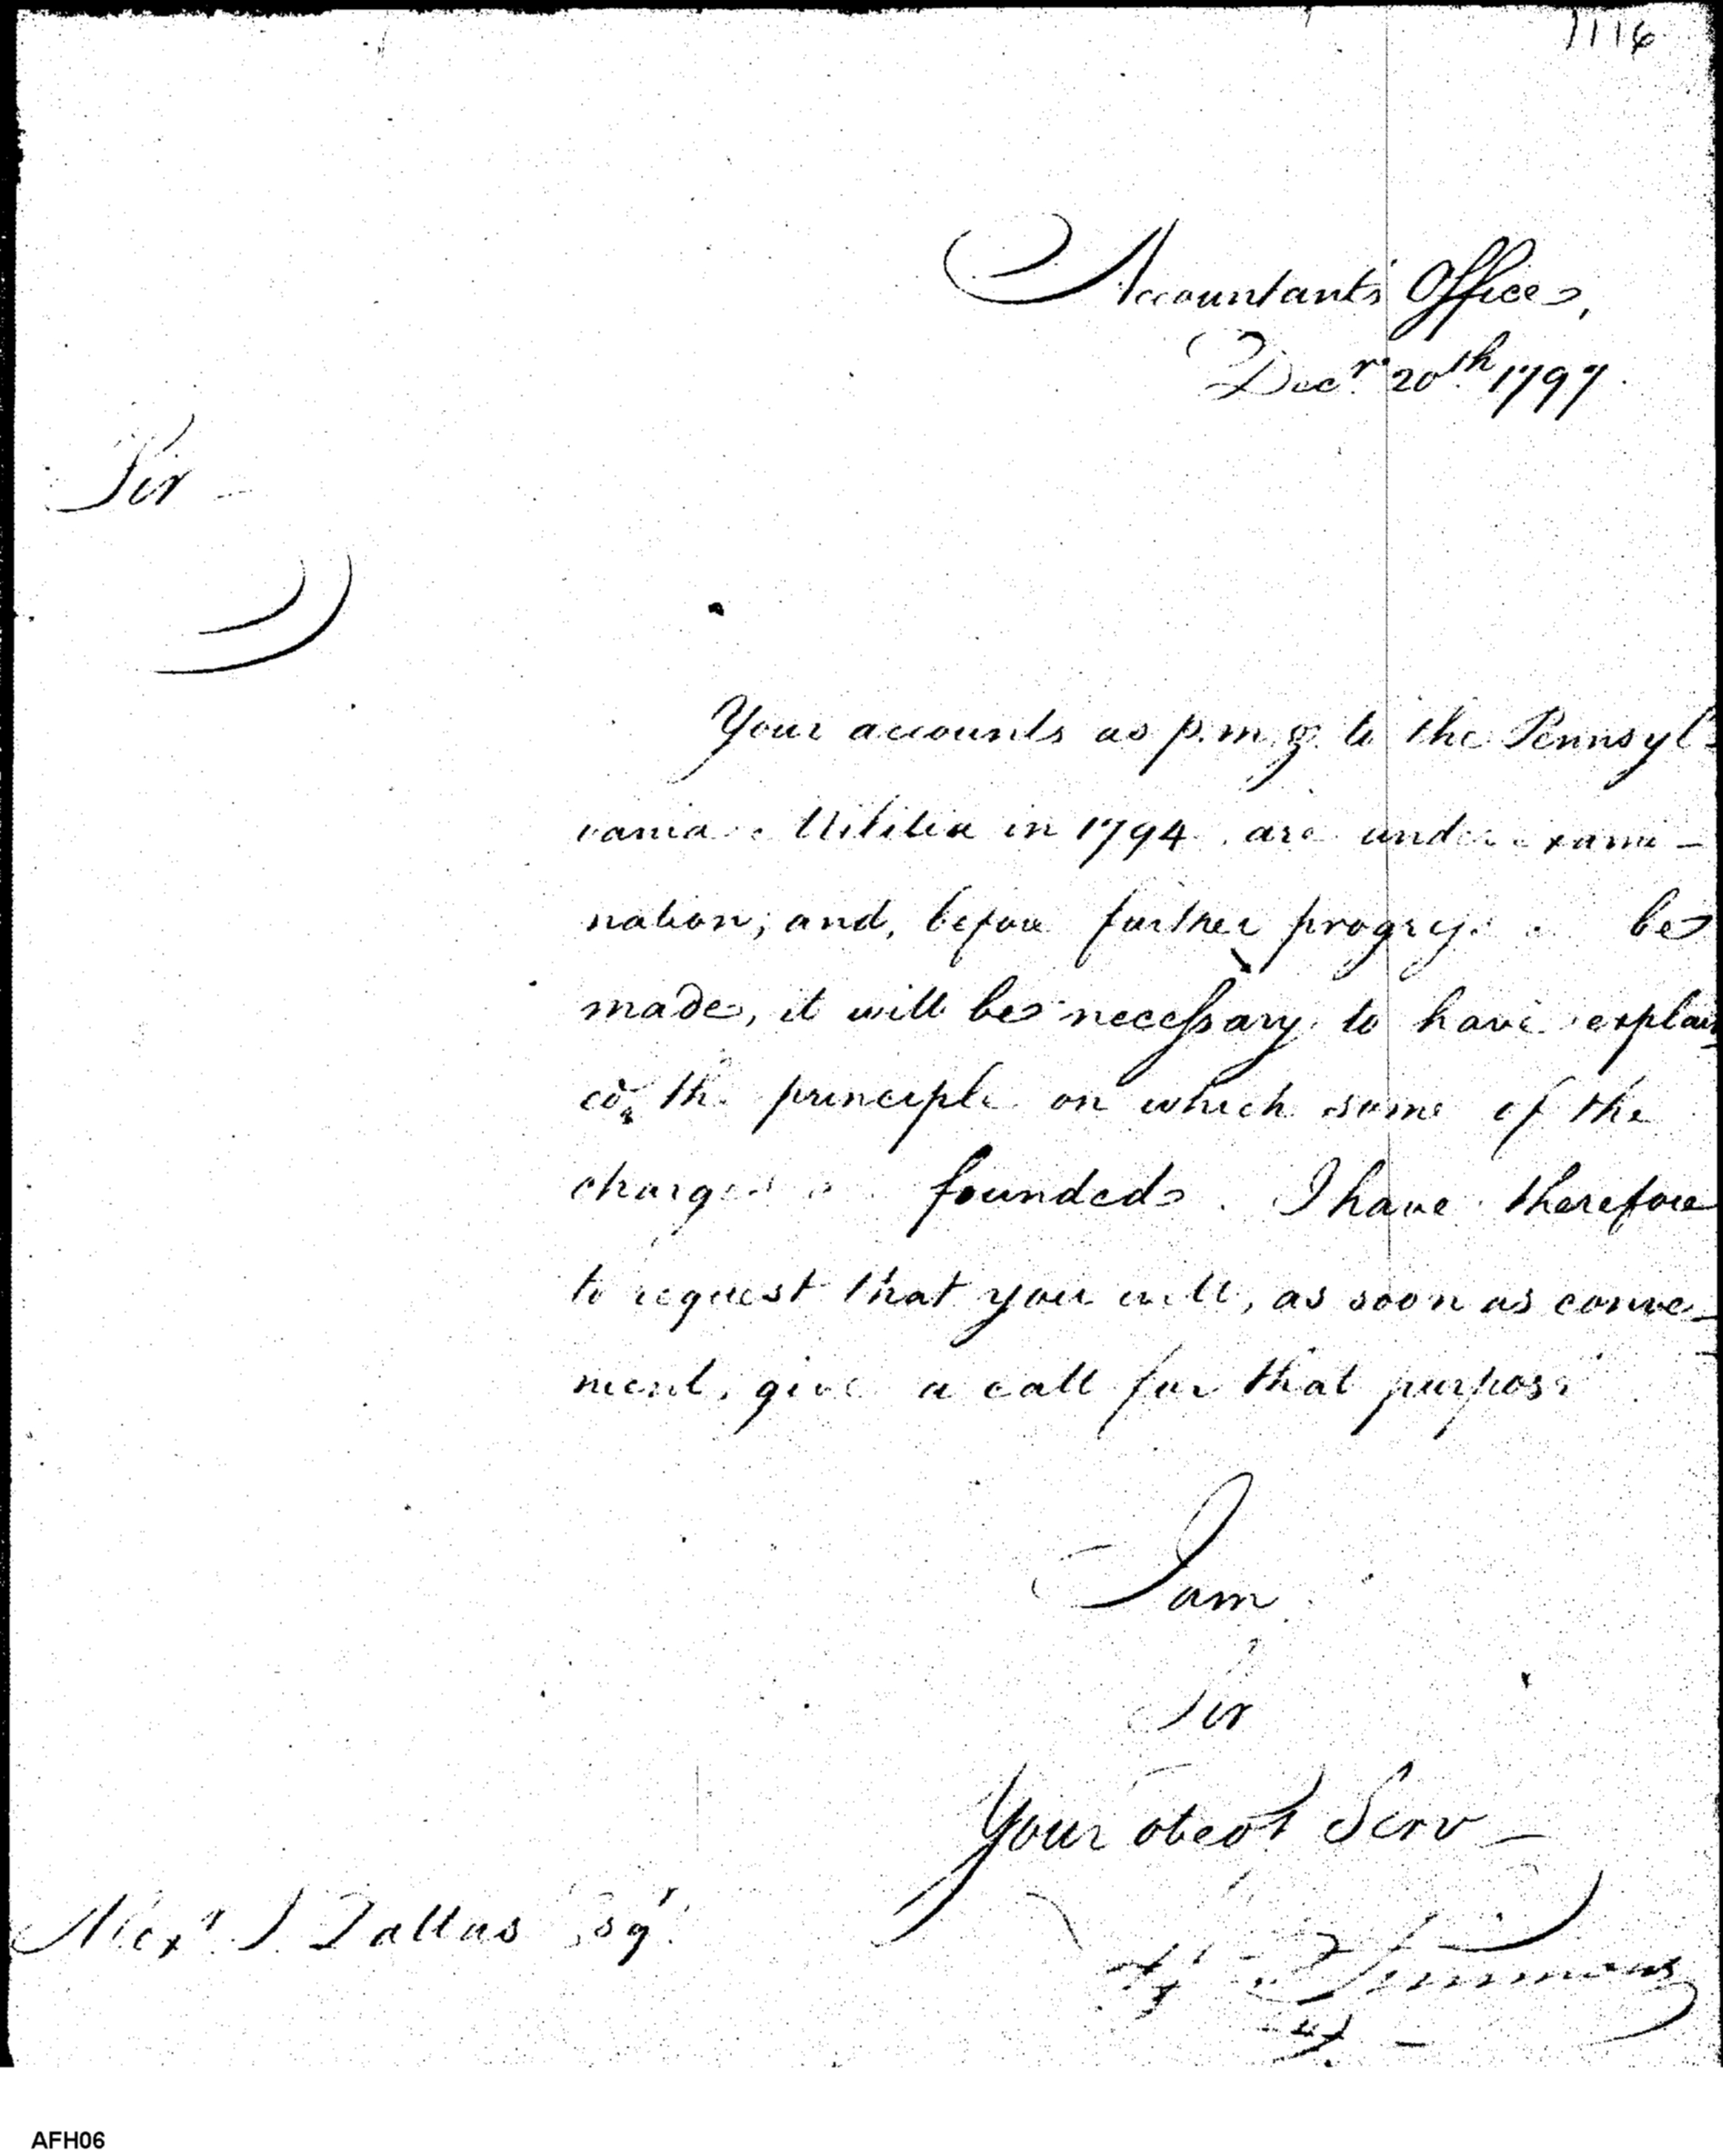 1116
Accountant's Office,
Decr. 20th 1797.
Sir
Your accounts as p.m.g. to the Pennsyl-
vania Militia in 1794 are under exami-
nation; and, before further progress be
made, it will be necessary to have explain
ed the principle on which some of the
charges founded. I have therefore
to request that you will, as soon as conve-
nient, give a call for that purpose
I am
Sir
Your obedt Serv
Alexr J Dallas Esqr.
Simmons
AFH06